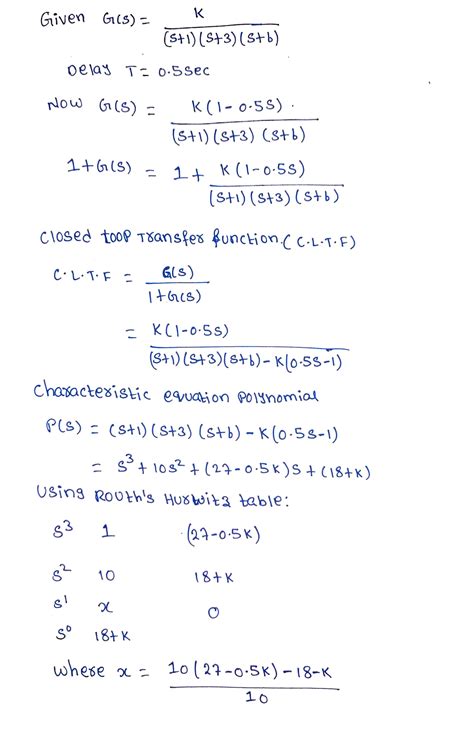 Given G(s) = K / (s+1)(s+3)(s+b)
Delay T = 0.5sec
Now G(s) = K(1-0.5s) . / (s+1)(s+3)(s+b)
1+G(s) = 1 + K(1-0.5s) / (s+1)(s+3)(s+b)
Closed toop Transfer function.( C.L.T.F)
C.L.T.F = G(s) / 1+G(s)
= K(1-0.5s) / (s+1)(s+3)(s+b)-K(0.5s-1)
Characteristic equation polynomial
P(s) = (s+1)(s+3)(s+b)-K(0.5s-1)
= s³+10s²+(27-0.5K)s+(18+K)
Using Routh's Hurwitz table:
s³ 1 (27-0.5K)
s² 10 18+K
s¹ x 0
s⁰ 18+K
where x = 10(27-0.5K)-18-K / 10